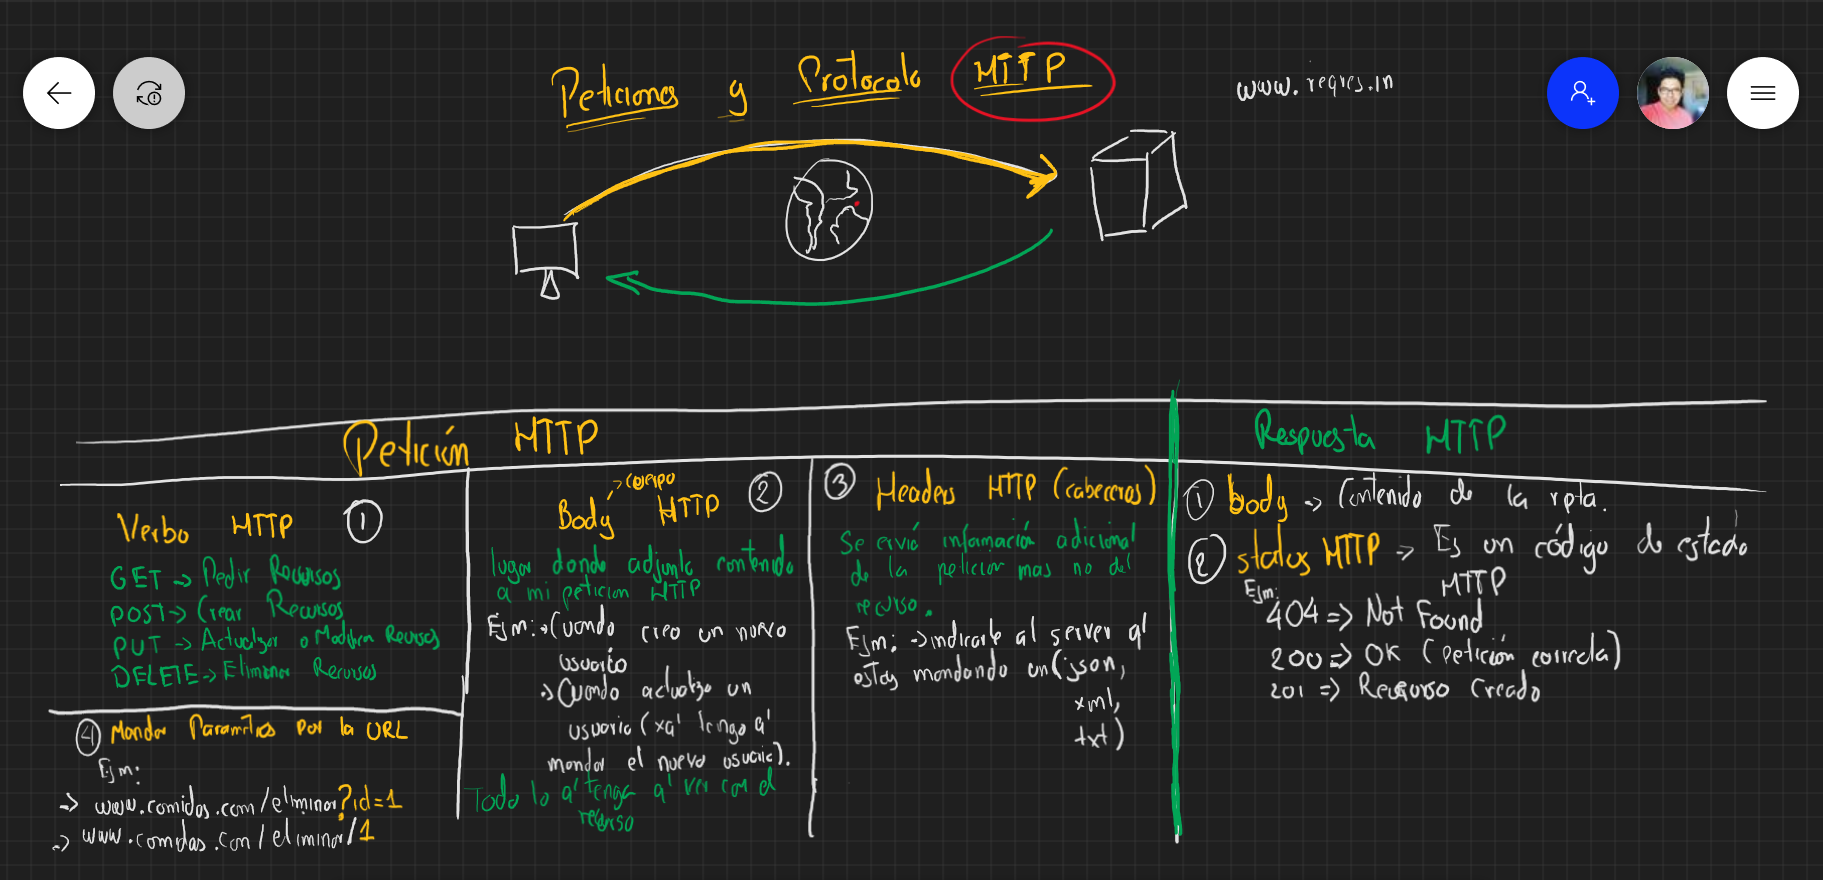 Peticiones y Protocolo HTTP
www.reqres.in
Petición HTTP
Respuesta HTTP
Verbo HTTP 1
GET -> Pedir Recursos
POST -> Crear Recursos
PUT -> Actualizar o Modificar Recursos
DELETE -> Eliminar Recursos
4 Mandar Parametros por la URL
Ejm:
-> www.comidas.com/eliminar?id=1
-> www.comidas.com/eliminar/1
-> cuerpo
Body HTTP 2
lugar donde adjunto contenido
a mi peticion HTTP
Ejm: -> Cuando creo un nuevo
usuario
-> Cuando actualizo un
usuario (xq' tengo q'
mandar el nuevo usuario).
Todo lo q' tenga q' ver con el
recurso
3 Headers HTTP (cabeceras)
Se envió información adicional
de la peticion mas no del
recurso.
Ejm: -> indicarle al server q'
estoy mandando un (json,
xml,
txt)
1 body -> Contenido de la rpta.
2 status HTTP -> Es un código de estado
HTTP
Ejm:
404 => Not Found
200 => OK (petición correcta)
201 => Recurso Creado